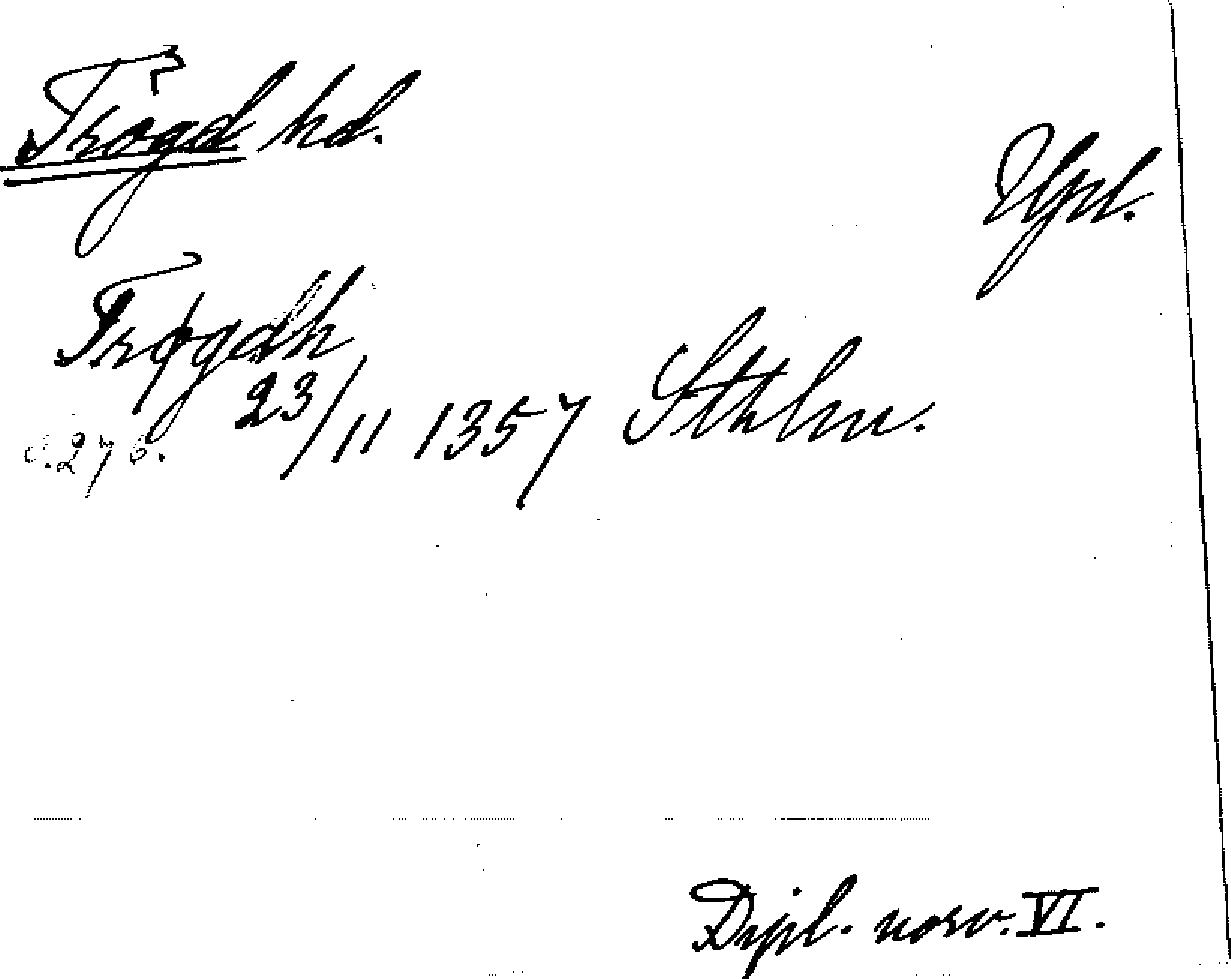 Trögd hd.
Upl.
Trøgdh
23/11 1357 Sthlm.
s. 276.
Dipl. norv. VI.